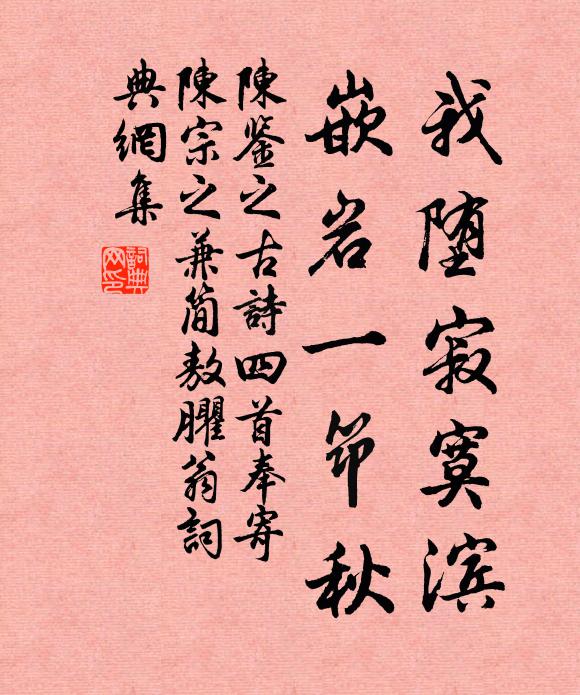 我堕寂寞滨
嵌岩一筇秋
陳鉴之古詩四首奉寄
陳宗之兼簡敖臞翁詞
典網集
詞典網印